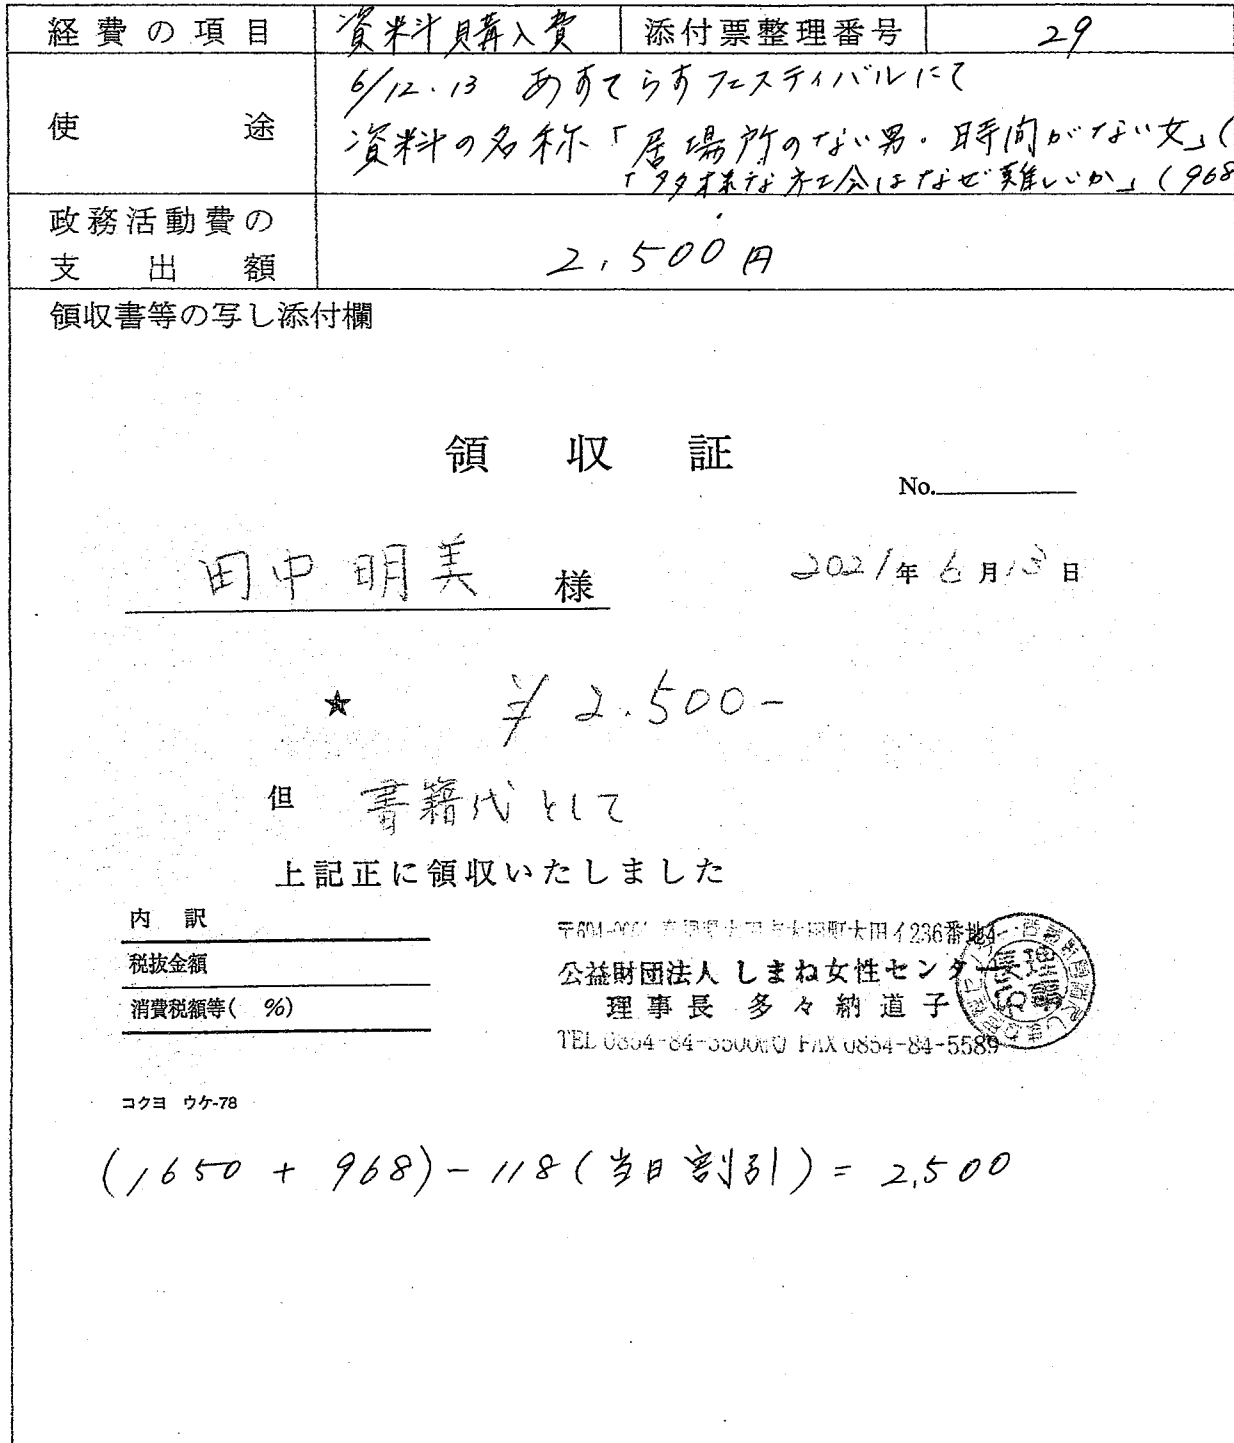 経費の項目 資料購入費 添付票整理番号 29
使途 6/12.13 あすてらすフェスティバルにて
資料の名称「居場所のない男・時間がない女」(
「多様な社会はなぜ難しいか」(968
政務活動費の
支出額 2,500円
領収書等の写し添付欄
領収証
No.
田中明美 様 2021年6月13日
★ ¥2.500-
但 書籍代として
上記正に領収いたしました
内訳
税抜金額
消費税額等( %)
大田イ236番地4
公益財団法人 しまね女性センター
理事長 多々納道子
FAX 0854-84-5589
コクヨ ウケ-78
(1650 + 968) - 118 (当日割引) = 2,500